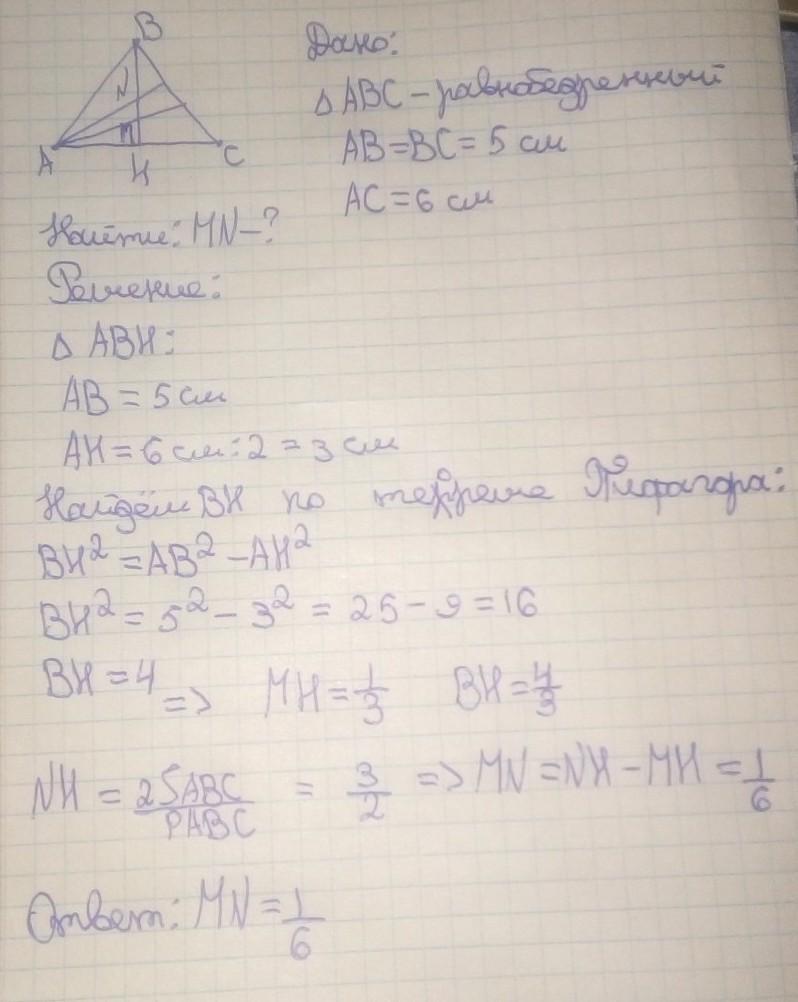 B
N
M
A
H
C
Дано:
△ ABC – равнобедренный
AB = BC = 5 см
AC = 6 см
Найти: MN – ?
Решение:
△ ABH:
AB = 5 см
AH = 6 см : 2 = 3 см
Найдём BH по теореме Пифагора:
BH² = AB² – AH²
BH² = 5² – 3² = 25 – 9 = 16
BH = 4 => MH = 1/3 BH = 4/3
NH = 2SABC/PABC = 3/2 => MN = NH – MH = 1/6
Ответ: MN = 1/6